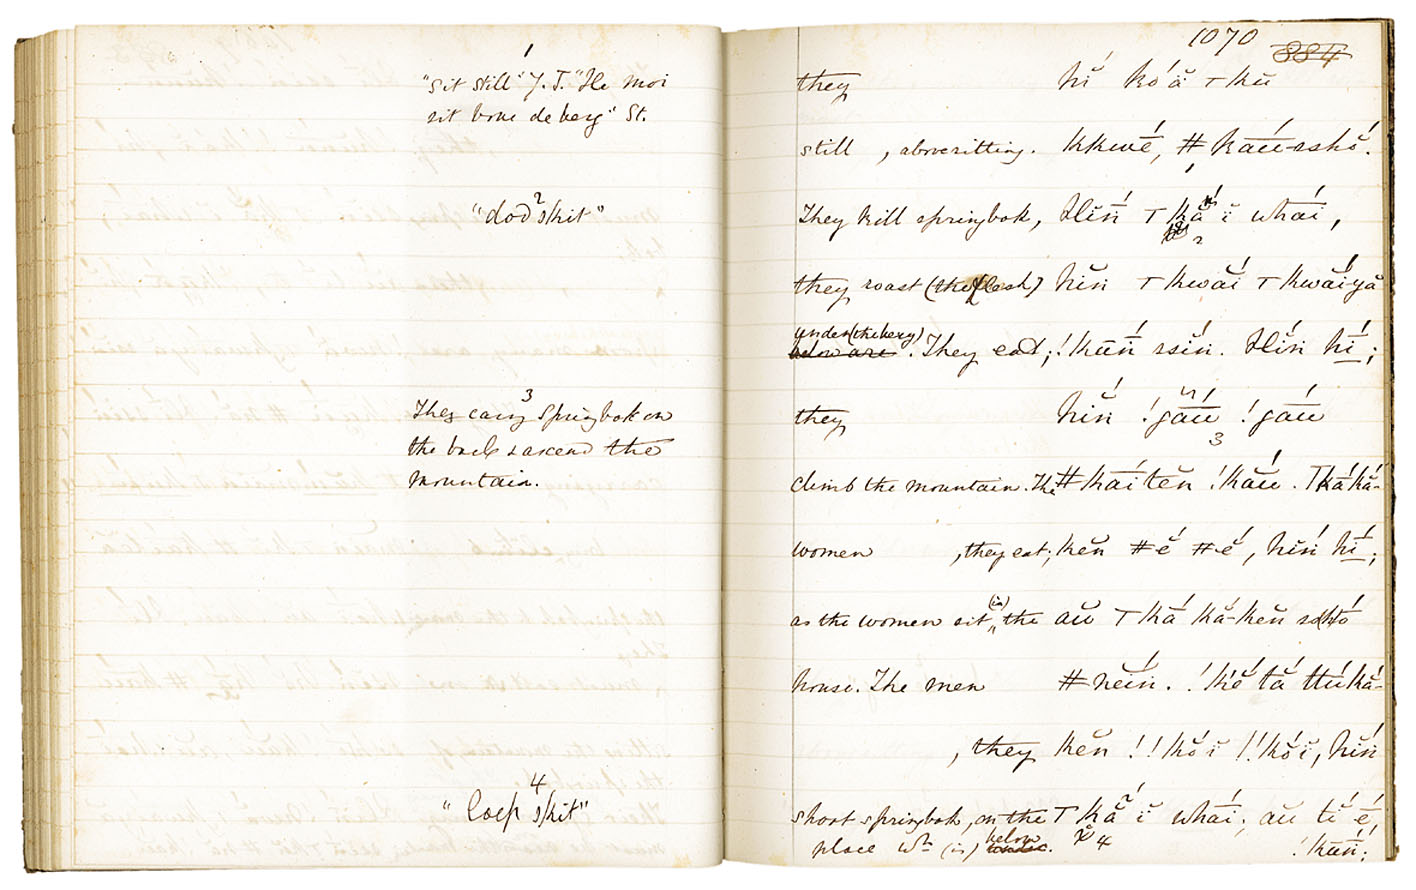 1
"sit still" J. T. "He moi
sit bove de berg" St.
2
"dod skit"
3
They carry springbok on
the back & ascend the
mountain.
4
"loep skit"
1070 884
they hĭ́ kó ằ ⊤ kŭ
still , above sitting. kkwḗ, # kā́ū-sshŏ́.
1
They kill springbok, Hĭń ⊤ kắ ĭ whā́ī,
2
they roast (the flesh) hĭń ⊤ kwā̆́ī ⊤ kwā̆́ī-yă
under (the berg)
below are . They eat; ! kūń ssĭń. Hĭń hī́;
they hĭń ! gā́ū ! gā́ū
3
climb the mountain. The # kā́ī tĕn ! kā̆́ū. ⊤ká kắ-
women , they eat; kĕn # ĕ́ # ĕ́, hĭń hī́;
(in)
as the women sit the aŭ ⊤ ká kắ-kĕn sshó
house. The men # nĕĭń. ! kĕ́ tá ttú kắ-
, they kĕn ! ! kŏ́ ĭ ! ! kŏ́ ĭ, hĭń
shoot springbok, on the ⊤ kắ ĭ whā́ī, aŭ tĭ́ ḗ
place wh (is) below under. 4 ! kūń;